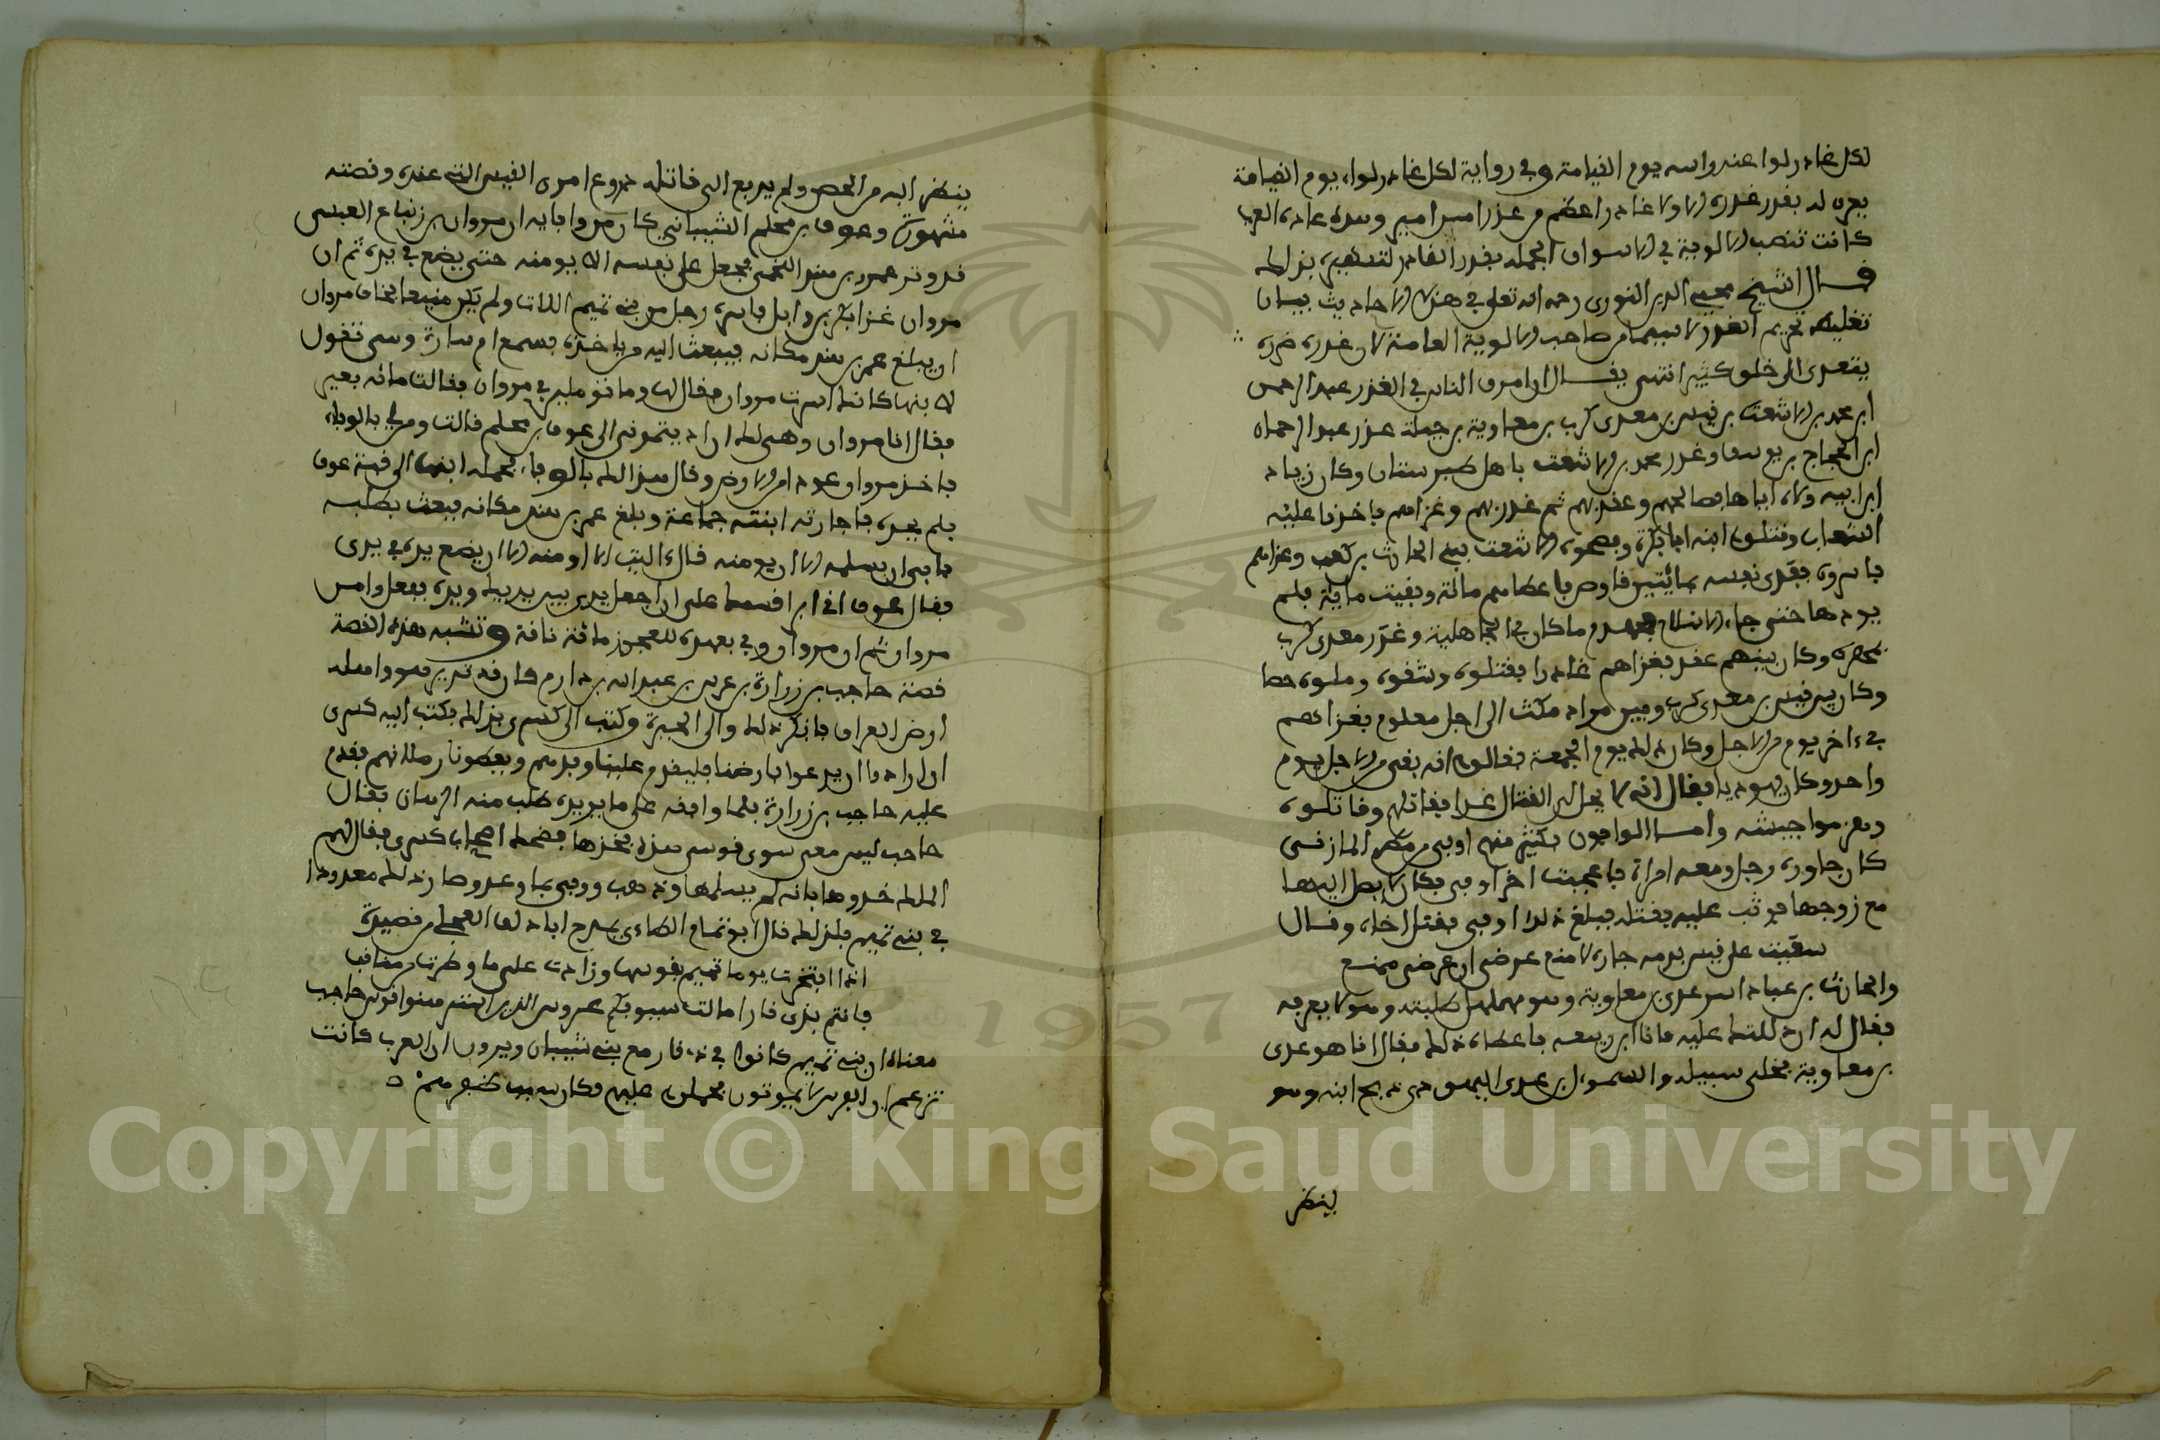 لكل غادر لواء عند راسه يوم القيامة وفي رواية لكل غادر لواء يوم القيامة
يعرف له بقدر غدره الا ولا غادر اعظم من غدرا من امير وهذه عادة العرب
كانت تنصب الالوية في الاسواق الجملة بغدر الغادر لتشهيره بذلك
قال الشيخ محيي الدين النووي رحمه الله تعلى في هذه الاحاديث بيان
تغليظ تحريم الغدر لا سيما من صاحب الالوية العامة لان غدره ضرره
يتعدى الى خلق كثير انتهى يقال ان اعرق الناس في الغدر عبد الرحمن
ابن محمد بن الاشعث بن قيس بن معدى كرب بن معاوية بن جبلة غدر عبد الرحمان
ابن الحجاج بن يوسف وغدر محمد بن الاشعث باهل طبرستان وكان زياد
ابن ابيه ولاه اياها فصالحهم وعقد لهم ثم غدر بهم وغزاهم فاخذوا عليه
الشعاب وقتلوا ابنه ابا بكرة وفضحوه الاشعث ببني الحارث بن كعب وغزاهم
فاسروه ففدى نفسه بمائتين قلوص فاعطاهم مائة وبقيت ماية فلم
يودها حتى جاء الاسلام فهدم ما كان في الجاهلية وغدر معدى كرب
بمهرة وكان بينهم عقد فغزاهم غادرا فقتلوه وشقوه وملوه حصا
وكان بين قيس بن معدى كرب وبين مراد مكث الى اجل معلوم فغزاهم
في ءاخر يوم من الاجل وكان ذلك يوم الجمعة فقالوا انه بقي من الاجل يوم
واحد وكان يهوديا فقال انه لا يحل لي القتال غدا فقاتلهم وقاتلوه
وهزموا جيشه وامسا الوافون فكثير منهم اوفى بن مطر المازني
كان جاوره رجل ومعه امراة فاعجبت اخا اوفى فكان لا يصل اليها
مع زوجها فوثب عليه فقتله فبلغ ذلك اوفى فقتل اخاه وقال
سعيت على قيس بذمة جاره لامنع عرضى ان عرضى ممنع
والحارث بن عباد اسر عدى بن معاوية وهو مهلهل طلبته وهو لا يعرفه
فقال له ان دللتك عليه فانا ابن ربيعه فاعطاه ذلك فقال انا هو عدى
بن معاوية فخلى سبيله والسموءل بن عدى اليهودى ذبح ابنه وهو
ينظر
ينظر اليه من الحصن ولم يدفع الى قاتله دروع امرى القيس التي عنده وقصته
مشهورة وعوف بن محلم الشيباني كان من وفايه ان مروان بن زنباع العبسى
قد وتر عمرو بن هند اللخمى فجعل على نفسه الا يومنه حتى يضع في يده ثم ان
مروان غزا بكر بن وايل فاسره رجل من بني تميم اللات ولم يكن منيعا فخاف مروان
ان يبلغ عمر بن هند مكانه فيبعث اليه من ياخذه فسمع ام ساره وهي تقول
لابنها كانك اسرت مروان فقال لها وما تؤملين في مروان فقالت مائه بعير
فقال انا مروان وهى لك ان اديتمونى الى عوف بن محلم قالت ومن لي بالوفاء
فاخذ مروان عودا من الارض وقال هذا لك بالوفاء فحمله ابنها الى قبة عوف
فلم يجده فاجارته ابنته جماعة وبلغ عمر بن هند مكانه فبعث بطلبه
فابى ان يسلمه الا ان يومنه قال ءاليت الا اومنه الا ان يضع يده في يدى
فقال عوف اني ابر قسمك على ان اجعل يدى بين يديك ويده ففعل وامن
مروان ثم ان مروان وفي بعهده للعجوز مائة ناقة وتشبه هذه القصة
قصة حاجب بن زرارة بن عدس بن عبد الله بن دارم كان قد نزل هو واهله
ارض العراق فانكر ذلك والى الحيرة وكتب الى كسرى بذلك فكتب اليه كسرى
ان ارادوا ان يرعوا بارضنا فليقدم علينا وفدهم ويعطونا رهائنهم فقدم
عليه حاجب بن زرارة فلما وافقه على ما يريده طلب منه الرهان فقال
حاجب ليس معى سوى قوسى هذه فخذها فضحك اصحاب كسرى فقال لهم
الملك خذوها فانه لم يسلمها وذهب ووفى بما وعد وصار ذلك معدودا
في بني تميم فلذلك قال ابو تمام الطاءى يمدح ابا دلف العجلى من قصيدة
اذا افتخرت يوما تميم بقوسها وزادت على ما وطدت من مناقب
فانتم بذى قار امالت سيوفكم عروس الذين استرهنوا قوس حاجب
معناه ان بني تميم كانوا في ذى قار مع بني شيبان ويروى ان العرب كانت
تزعم ان الفرس لا يموتون فحملوا عليهم فكان سبب ظفرهم